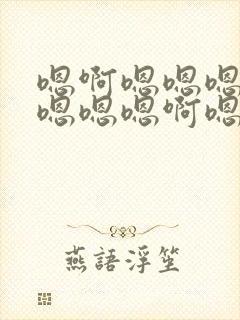 嗯啊嗯嗯嗯
嗯嗯嗯啊嗯
燕語浮笙